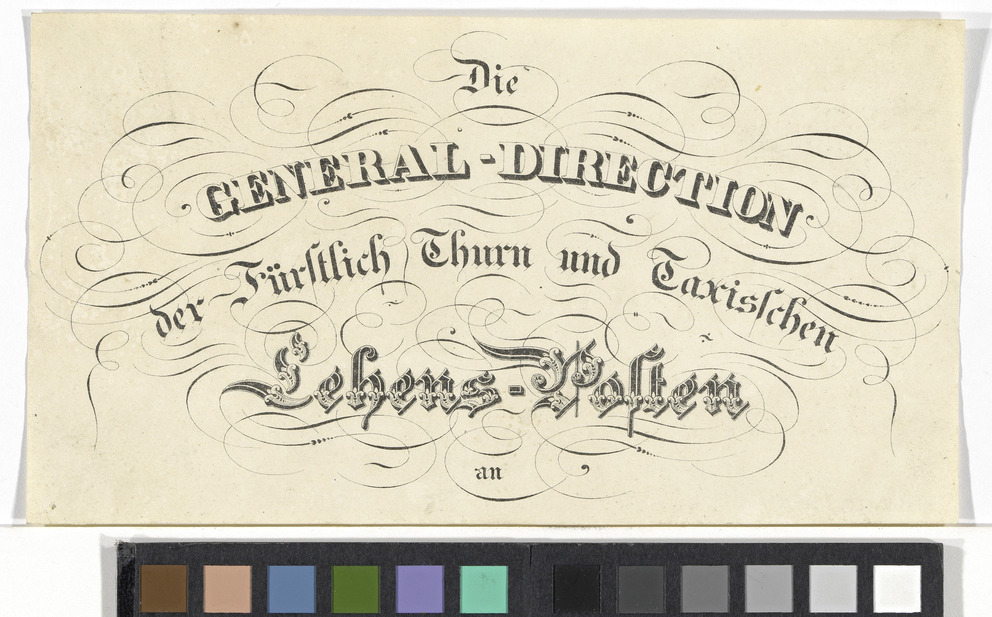 Die
GENERAL-DIRECTION
der Fürstlich Thurn und Taxisschen
Lehens-Posten
an